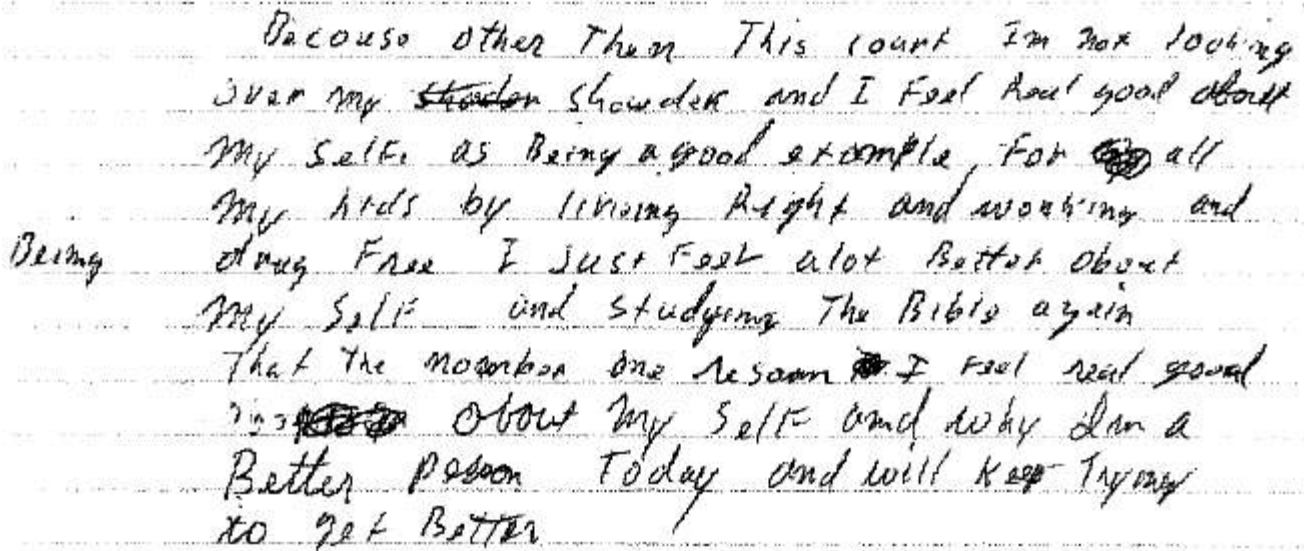 Becouse other Then This court Im not looking
over my shouder and I Feel Real good about
my Self. as Being a good example For all
my kids by living Right and working and
Being drug Free I Just Feel alot Better about
my Self and studying The Bible again
That the noomber one resoan I Feel real good
about my Self and why Im a
Better peson Today and will Keep Trying
to get Better